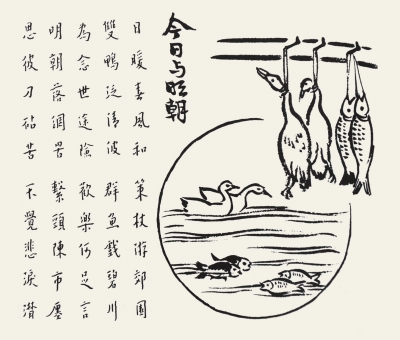 今日与明朝
日暖春風和 策杖游郊園
雙鴨泛清波 群魚戲碧川
為念世途險 歡樂何足言
明朝落網罟 繫頸陳市廛
思彼刀砧苦 不覺悲淚潸